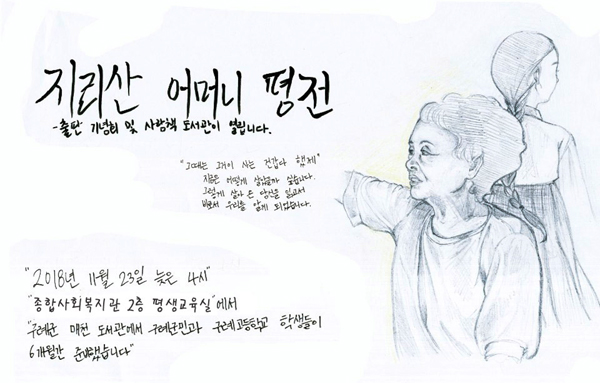 지리산 어머니 평전
-출판 기념회 및 사람책 도서관이 열립니다.
"그때는 그것이 사는 건갑다 했제"
지금은 어떻게 살았을까 싶습니다.
그렇게 살아 온 당신을 읽고서
비로서 우리를 알게 되었습니다.
"2018년 11월 23일 늦은 4시"
"종합사회복지관 2층 평생교육실"에서
"구례군 매천 도서관에서 구례군민과 구례고등학교 학생들이
6개월간 준비했습니다"